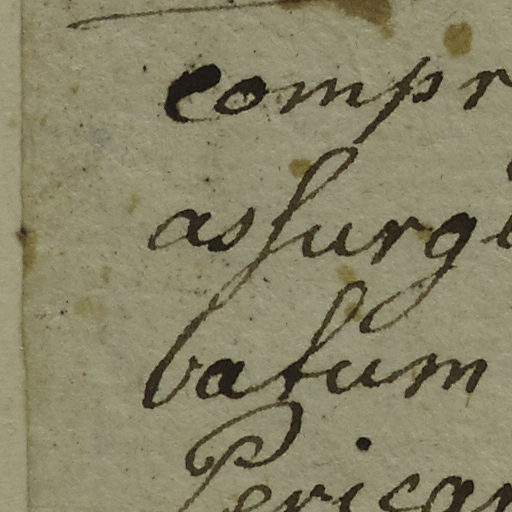 compr
assurgi
batum
Perican